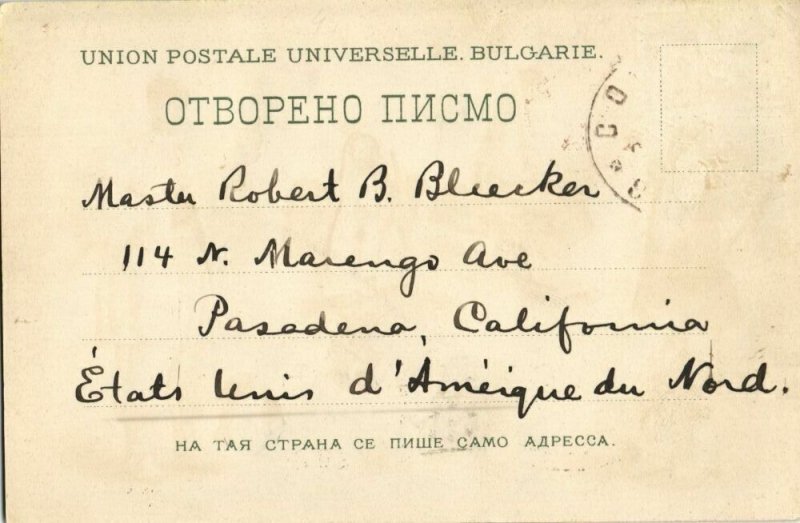 UNION POSTALE UNIVERSELLE. BULGARIE.
ОТВОРЕНО ПИСМО
Master Robert B. Bleecker
114 N. Marengo Ave
Pasadena, California
États Unis d'Améique du Nord.
НА ТАЯ СТРАНА СЕ ПИШЕ САМО АДРЕССА.